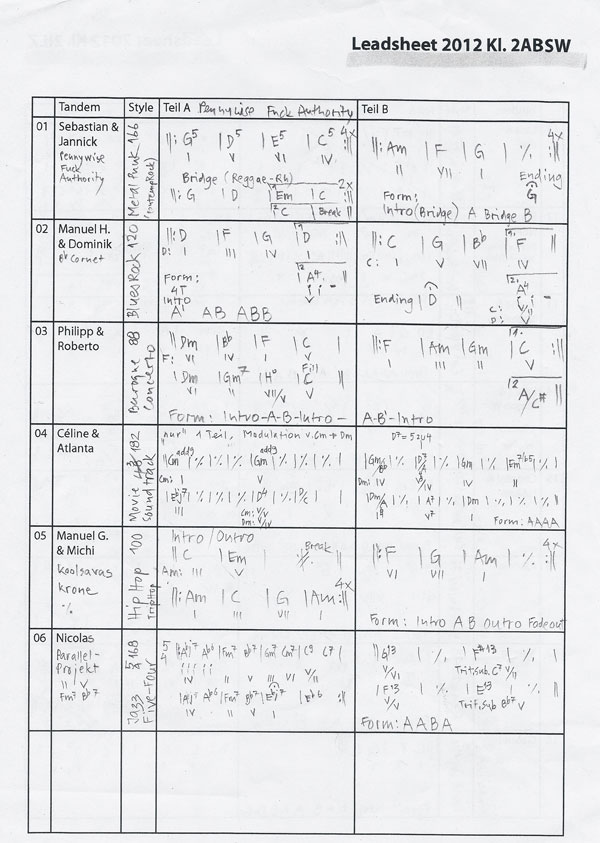 Leadsheet 2012 Kl. 2ABSW
Tandem Style Teil A Pennywise Fuck Authority Teil B
01 Sebastian & Jannick
Pennywise
Fuck
Authority
Metal Punk 166
(ContempRock)
||: G5 | D5 | E5 | C5 :|| 4x
I V VI IV
Bridge (Reggae-Rh)
||: G | D | 1. Em | C :|| 2x
2. C | Break ||
||: Am | F | G | ٪ :|| 4x
II VII I
Ending
G
Form:
Intro (Bridge) A Bridge B
02 Manuel H. & Dominik
Bb Cornet
Blues Rock 120
||: D | F | G | 1. D :||
D: I III IV I
2. | A4 ||
V
Form:
4T
Intro
A' AB ABB
||: C | G | Bb | 1. F :||
C: I V VII IV
2. A4
Ending | D ||
C:
D: V
03 Philipp & Roberto
Baroque 88
Concerto
||: Dm | Bb | F | C |
F: VI IV I V
| Dm | Gm7 | H° | C Fill ||
VI II VII/V V
Form: Intro-A-B-Intro-
||: F | Am | Gm | 1. C :||
I III II V
2. A/C# ||
A-B'-Intro
04 Céline & Atlanta
Movie 182
Soundtrack
"nur" 1 Teil, Modulation v. Cm → Dm
|| Cm add9 | ٪ | ٪ | Gm add9 | ٪ | ٪ |
Cm: I V
| Ebj7 | ٪ | ٪ | D4 | ٪ | D/C |
III
D7 = 5204
| Gm | ٪ | ٪ | Gm | Em7/b5 | ٪ |
Dm: IV IV II
| Dm/A | ٪ | A7 | ٪ | Dm | ٪ | ٪ | ٪ ||
V7 I
Form: AAAA
05 Manuel G. & Michi
Koolsavas
Krone
٪
Hip Hop 100
TripHop
Intro/Outro
|| C | Em | ٪ Break ||
Am: III V
||: Am | C | G | Am :|| 4x
I III VII I
||: F | G | Am | ٪ :|| 4x
VI VII I
Form: Intro A B Outro Fadeout
06 Nicolas
Parallel-
Projekt
II V
Fm7 Bb7
Jazz 168
Five-Four
5/4 ||: Abj7 Ab6 | Fm7 Bb7 | Gm7 Cm7 | C9 C7 |
II V III VI
| Abj7 Ab6 | Fm7 Bb7 | Ebj7 | Eb6 :||
IV II V I
|| G13 | ٪ | | ٪ |
V/VI Trit.sub. C7 V/II
| F13 | ٪ | E13 | ٪ ||
V/V Trit.Sub Bb7 V
Form: AABA